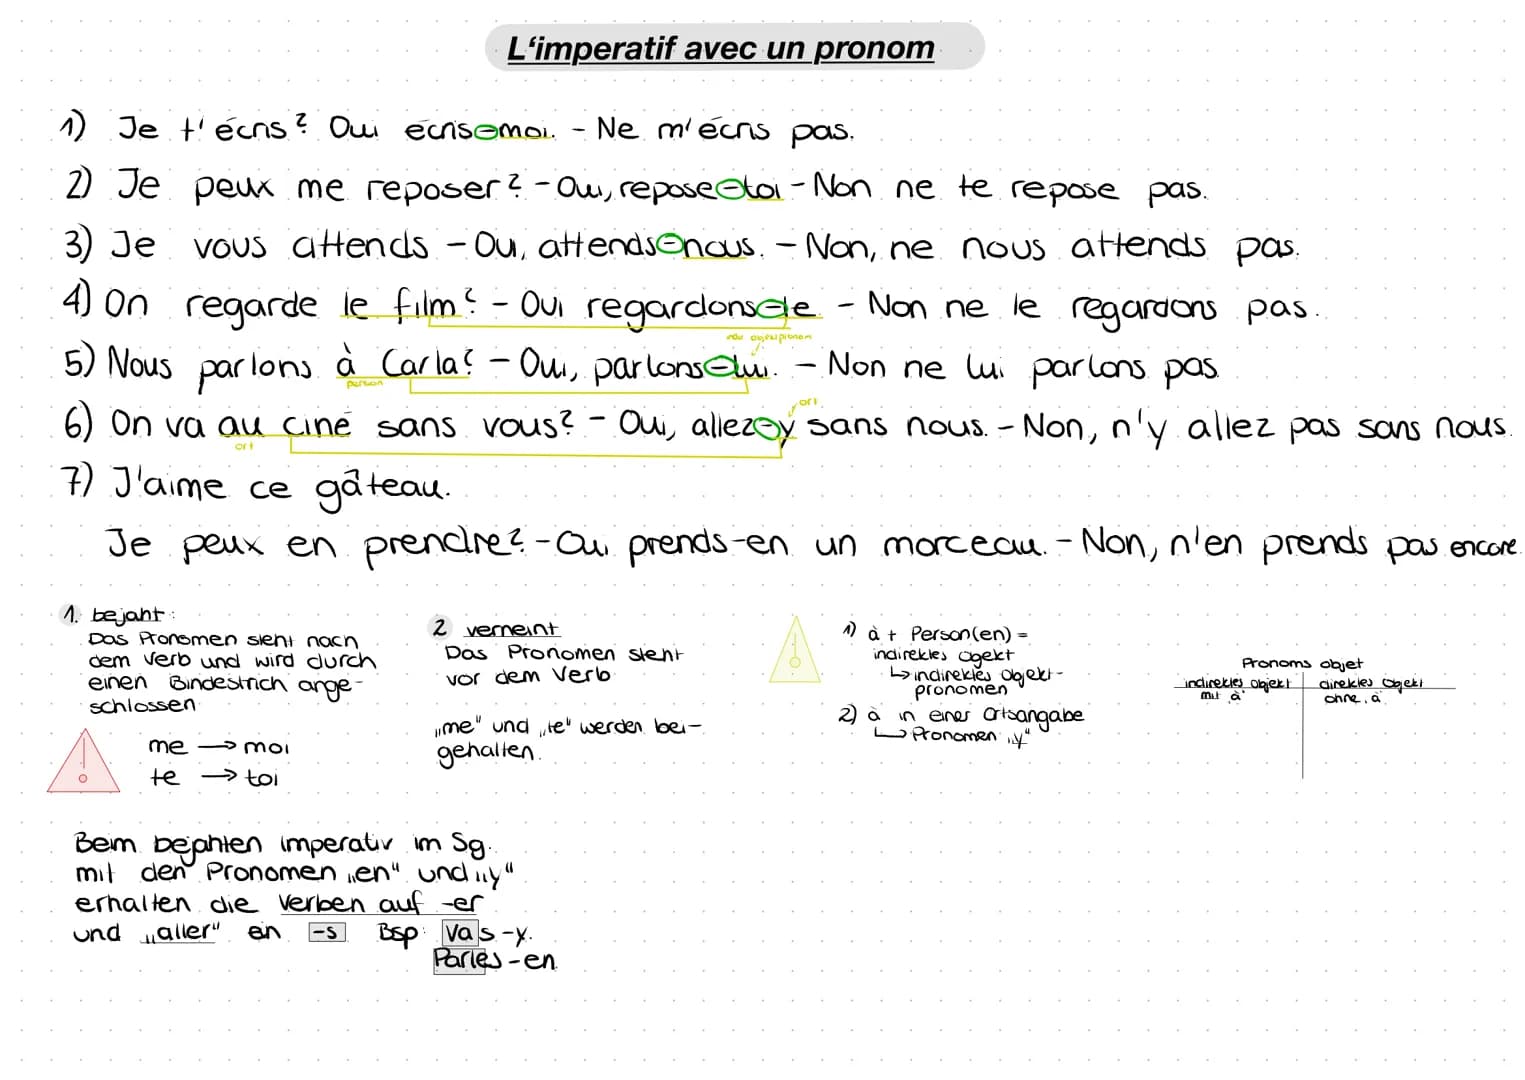 L'imperatif avec un pronom
1) Je t'écris? Oui écris-moi. - Ne m'écris pas.
2) Je peux me reposer? - Oui, repose-toi - Non ne te repose pas.
3) Je vous attends - Oui, attends-nous. - Non, ne nous attends pas.
4) On regarde le film? - Oui regardons-le. - Non ne le regardons pas.
5) Nous parlons à Carla? - Oui, parlons-lui. - Non ne lui parlons pas
person
6) On va au ciné sans vous? - Oui, allez-y sans nous. - Non, n'y allez pas sans nous.
ort
ort
7) J'aime ce gâteau.
Je peux en prendre? - Oui prends-en un morceau. - Non, n'en prends pas encore.
1. bejaht:
Das Pronomen steht nach
dem Verb und wird durch
einen Bindestrich ange-
schlossen
me → moi
te → toi
2 verneint
Das Pronomen steht
vor dem Verb
„me" und „te" werden bei-
gehalten.
1) à + Person(en) =
indirektes Objekt
↳ indirektes Objekt-
pronomen
2) à in einer Ortsangabe
↳ Pronomen „y"
Pronoms objet
indirektes Objekt direktes Objekt
mit à ohne à
Beim bejahten imperativ im Sg.
mit den Pronomen „en" und „y"
erhalten die Verben auf -er
und „aller" ein -s Bsp: Vas-y.
Parles-en.